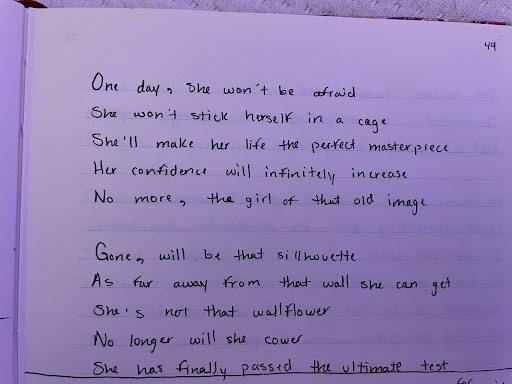 44
One day, she won't be afraid
She won't stick herself in a cage
She'll make her life the perfect masterpiece
Her confidence will infinitely increase
No more, the girl of that old image
Gone, will be that sillhouette
As far away from that wall she can get
She's not that wallflower
No longer will she cower
She has finally passed the ultimate test